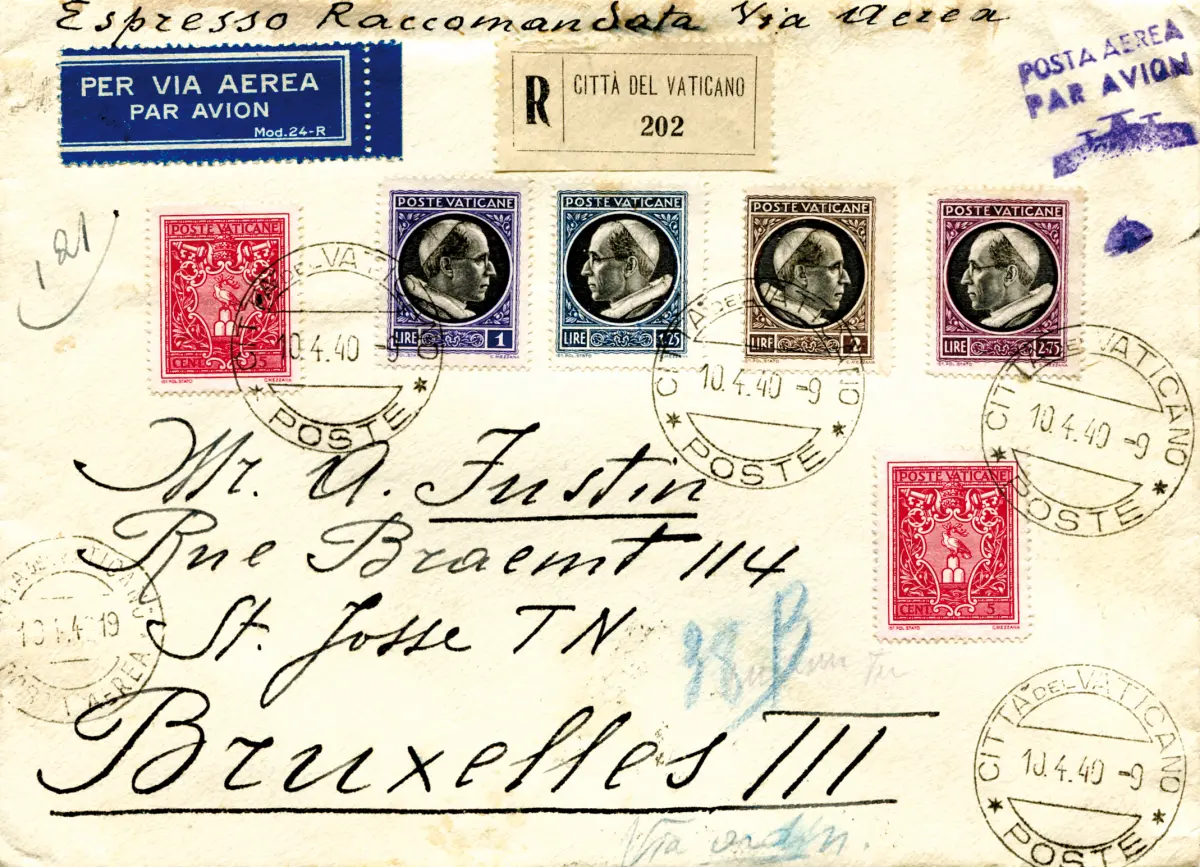 Espresso Raccomandata Via Aerea
PER VIA AEREA
PAR AVION
Mod. 24-R
R
CITTÀ DEL VATICANO
202
POSTA AEREA
PAR AVION
121
POSTE VATICANE
CENT.
IST. POL. STATO
C. MEZZANA
POSTE VATICANE
LIRE 1
C. MEZZANA
POSTE VATICANE
LIRE 1,25
IST. POL. STATO
POSTE VATICANE
LIRE 2
POSTE VATICANE
LIRE 2,75
CITTÀ DEL VATICANO
10.4.40 -9
POSTE
CITTÀ DEL VATICANO
10.4.40 -9
POSTE
CITTÀ DEL VATICANO
10.4.40 -9
POSTE
Mr. A. Justin
Rue Braemt 114
St. Josse TN
Bruxelles III
POSTE VATICANE
CENT. 5
IST. POL. STATO
C. MEZZANA
19
AEREA
38 B
CITTÀ DEL VATICANO
10.4.40 -9
POSTE
Via